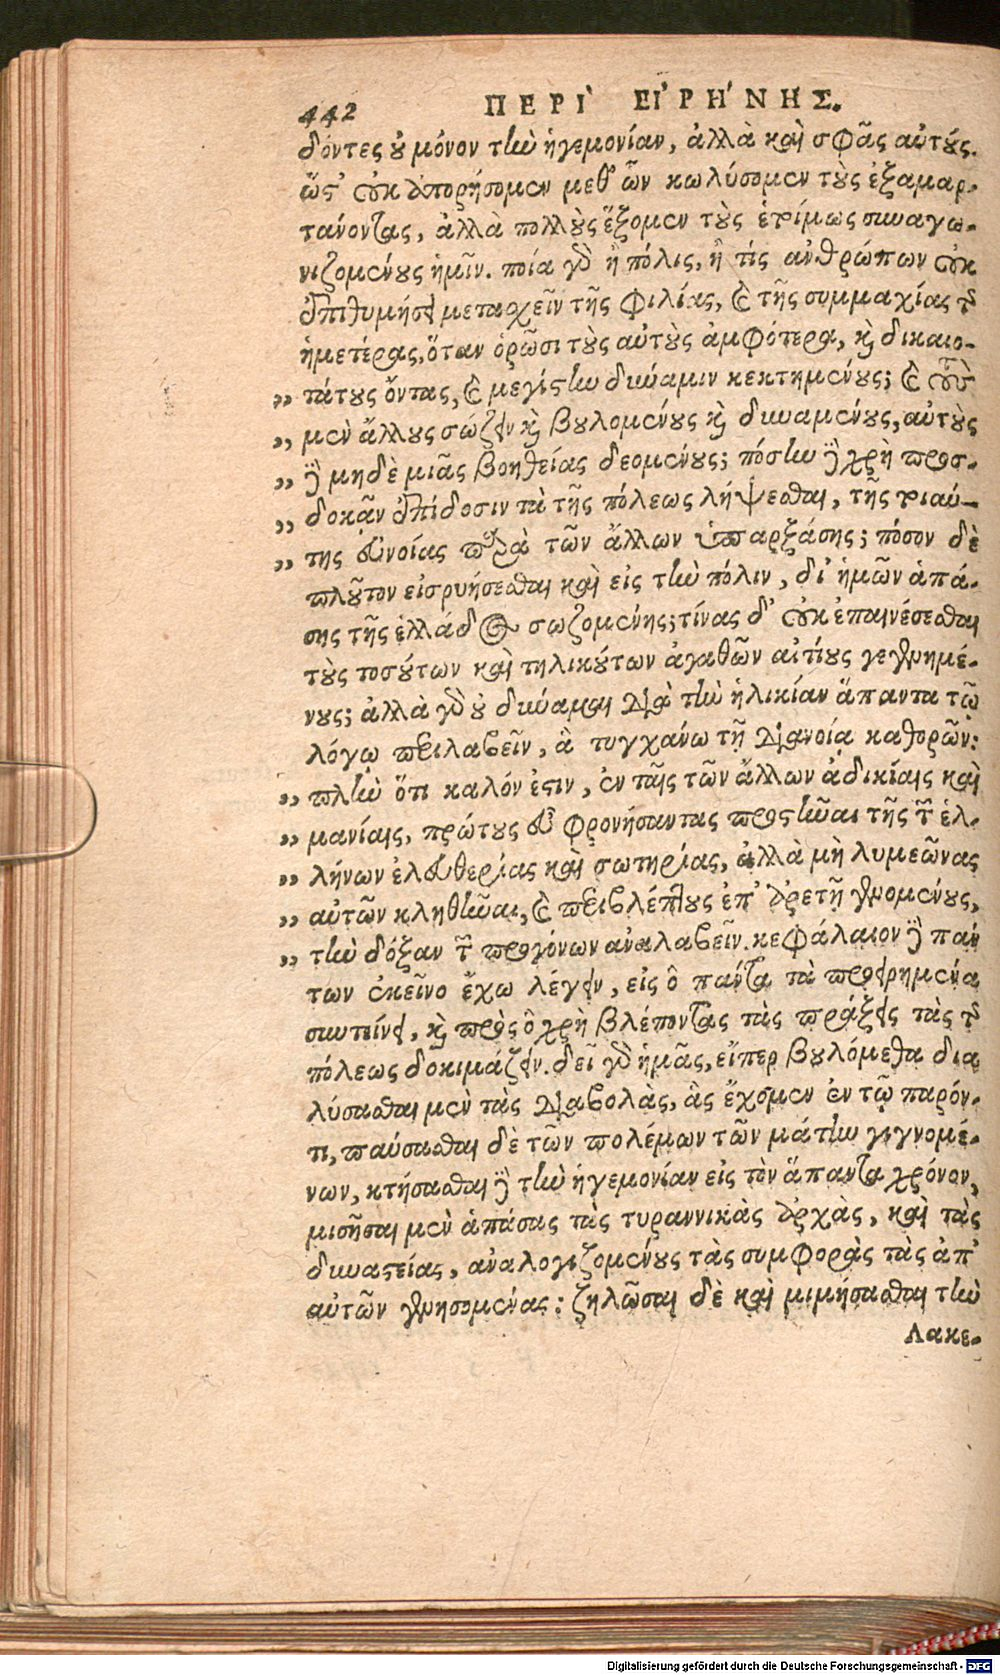 442 ΠΕΡῚ ΕἸΡΉΝΗΣ.
δόντες οὐ μόνον τὴν ἡγεμονίαν, ἀλλὰ καὶ σφᾶς αὐτούς.
ὥστ' οὐκ ἀπορήσομεν μεθ' ὧν κωλύσομεν τοὺς ἐξαμαρ-
τάνοντας, ἀλλὰ πολλοὺς ἕξομεν τοὺς ἑτοίμως συναγω-
νιζομένους ἡμῖν. ποία γὰρ ἢ πόλις, ἢ τίς ἀνθρώπων οὐκ
ἐπιθυμήσει μετασχεῖν τῆς φιλίας, καὶ τῆς συμμαχίας τῆς
ἡμετέρας, ὅταν ὁρῶσι τοὺς αὐτοὺς ἀμφότερα, καὶ δικαιο-
„ τάτους ὄντας, καὶ μεγίστην δύναμιν κεκτημένους; καὶ τοὺς
„ μὲν ἄλλους σώζειν καὶ βουλομένους καὶ δυναμένους, αὐτοὺς
„ δὲ μηδὲ μιᾶς βοηθείας δεομένους; πόσην δὲ χρὴ προσ-
„ δοκᾶν ἐπίδοσιν τὰ τῆς πόλεως λήψεσθαι, τῆς τοιαύ-
„ της εὐνοίας παρὰ τῶν ἄλλων ὑπαρξάσης; πόσον δὲ
πλοῦτον εἰσρυήσεσθαι καὶ εἰς τὴν πόλιν, δι' ἡμῶν ἁπά-
σης τῆς ἑλλάδος σωζομένης; τίνας δ' οὐκ ἐπαινέσεσθαι
τοὺς τοσούτων καὶ τηλικούτων ἀγαθῶν αἰτίους γεγενημέ-
νους; ἀλλὰ γὰρ οὐ δύναμαι διὰ τὴν ἡλικίαν ἅπαντα τῷ
λόγῳ περιλαβεῖν, ἃ τυγχάνω τῇ διανοίᾳ καθορῶν:
„ πλὴν ὅτι καλόν ἐστιν, ἐν ταῖς τῶν ἄλλων ἀδικίαις καὶ
„ μανίαις, πρώτους εὖ φρονήσαντας προστῆναι τῆς τῶν ἑλ-
„ λήνων ἐλευθερίας καὶ σωτηρίας, ἀλλὰ μὴ λυμεῶνας
„ αὐτῶν κληθῆναι, καὶ περιβλέπτους ἐπ' ἀρετῇ γενομένους,
„ τὴν δόξαν τῶν προγόνων ἀναλαβεῖν. κεφάλαιον δὲ πάν
των ἐκεῖνο ἔχω λέγειν, εἰς ὃ πάντα τὰ προειρημένα
συντείνει, καὶ πρὸς ὃ χρὴ βλέποντας τὰς πράξεις τὰς τῆς
πόλεως δοκιμάζειν. δεῖ γὰρ ἡμᾶς, εἴπερ βουλόμεθα δια
λύσασθαι μὲν τὰς διαβολὰς, ἃς ἔχομεν ἐν τῷ παρόν-
τι, παύσασθαι δὲ τῶν πολέμων τῶν μάτην γιγνομέ-
νων, κτήσασθαι δὲ τὴν ἡγεμονίαν εἰς τὸν ἅπαντα χρόνον,
μισῆσαι μὲν ἁπάσας τὰς τυραννικὰς ἀρχὰς, καὶ τὰς
δυναστείας, ἀναλογιζομένους τὰς συμφορὰς τὰς ἀπ'
αὐτῶν γενησομένας: ζηλῶσαι δὲ καὶ μιμήσασθαι τὴν
Λακε-
Digitalisierung gefördert durch die Deutsche Forschungsgemeinschaft - DFG